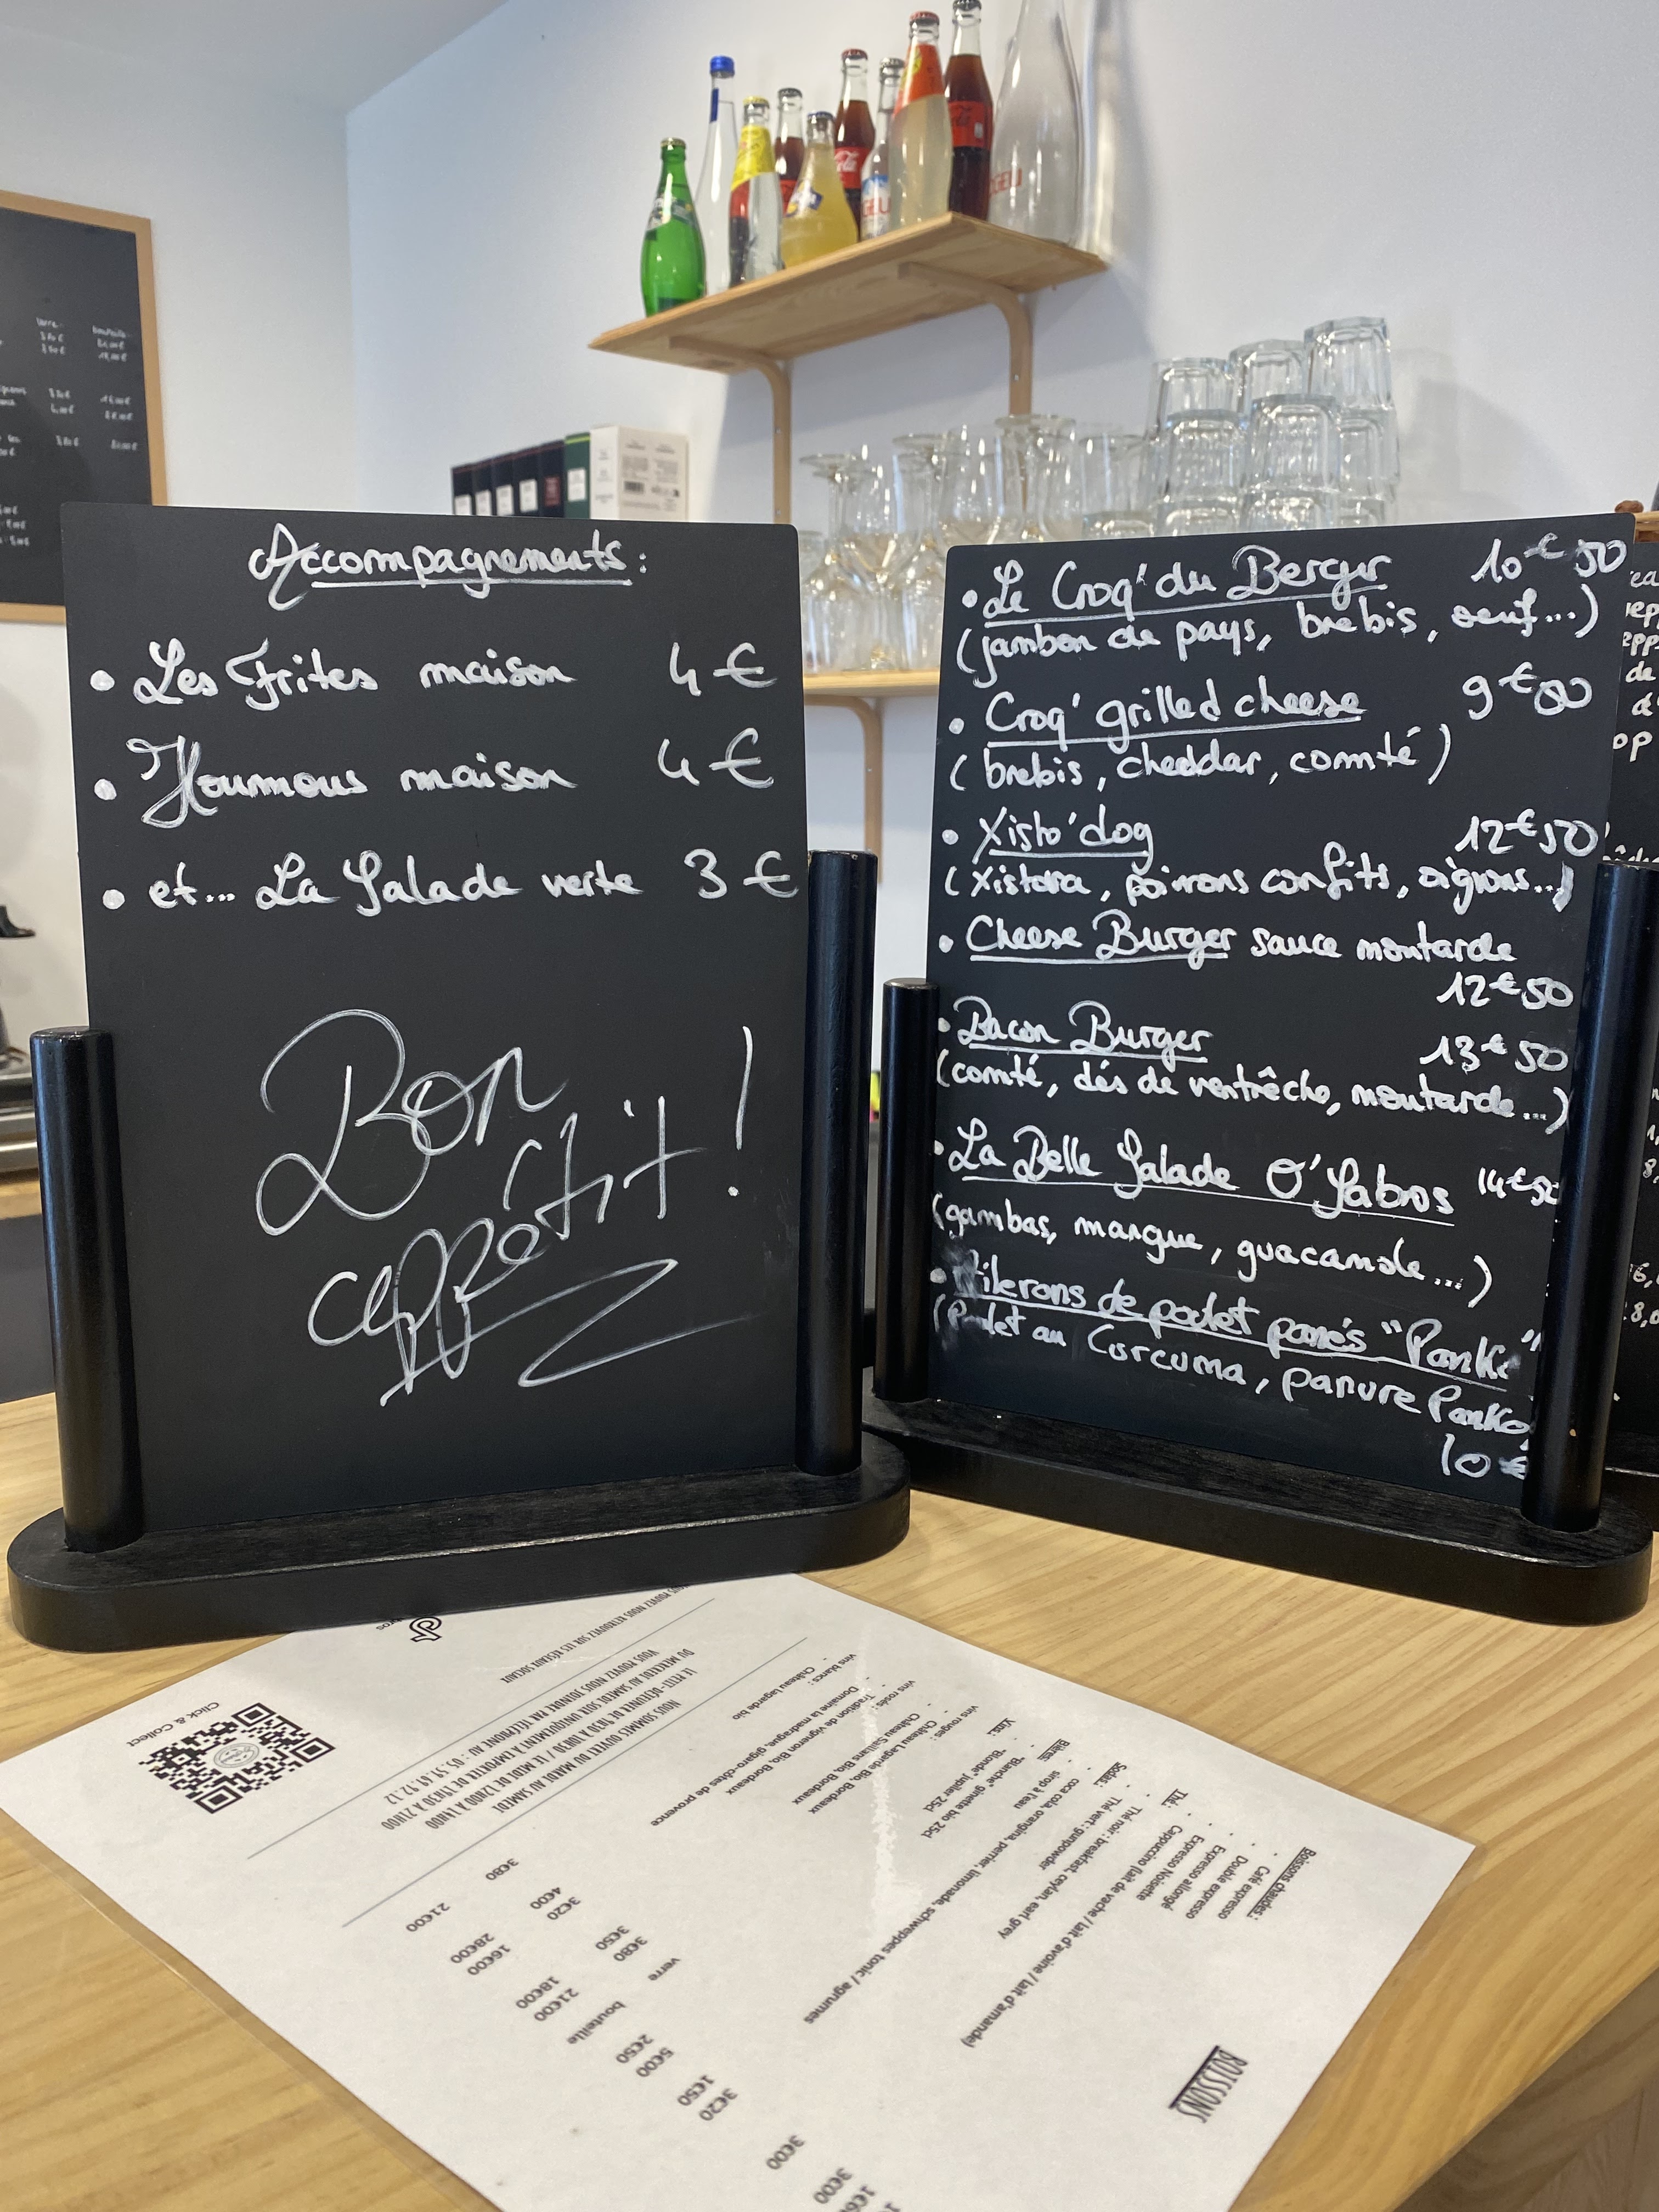 Accompagnements :
• Les Frites maison 4 €
• Houmous maison 4 €
• et... La Salade verte 3 €
Bon
appétit !
• Le Croq' du Berger 10€50
(jambon de pays, brebis, oeuf...)
• Croq' grilled cheese 9€00
(brebis, cheddar, comté)
• Xisto'dog 12€50
(Xistora, poivrons confits, oignons...)
• Cheese Burger sauce moutarde
12€50
• Bacon Burger 13€50
(comté, dés de ventrêche, moutarde...)
• La Belle Salade O'Sabros 14€50
(gambas, mangue, guacamole...)
• Ailerons de poulet panés "Panko"
(Poulet au Curcuma, panure Panko)
10 €
BOISSONS
Boissons chaudes :
- Café expresso
- Double expresso
- Expresso allongé
- Expresso Noisette
- Cappuccino (lait de vache / lait d'avoine / lait d'amande)
Thé :
- Thé noir : breakfast, ceylan, earl grey
- Thé vert : gunpowder
Sodas :
- coca cola, orangina, perrier, limonade, schweppes tonic / agrumes
- sirop à l'eau
Bières :
- "Blanche" ginette bio 25cl
- "Blonde" jupiler 25cl
Vins :
vins rouges :
- Château Lagarde Bio, Bordeaux
- Château Sallians Bio, Bordeaux
vins rosés :
- Tradition de Vigneron Bio, Bordeaux
- Domaine la madrague, gigaro-côtes de provence
vins blancs :
- Château Lagarde bio
3€00
3€20
1€50
5€00
2€50
verre bouteille
3€80 21€00
3€50 18€00
3€20 16€00
4€00 28€00
3€80 21€00
NOUS SOMMES OUVERT DU MARDI AU SAMEDI
LE PETIT-DÉJEUNER DE 9H30 À 10H30 / LE MIDI DE 12H00 À 14H00
DU MERCREDI AU SAMEDI SOIR UNIQUEMENT À EMPORTER DE 19H30 À 21H00
VOUS POUVEZ NOUS JOINDRE PAR TÉLÉPHONE AU : 05.59.41.92.12
VOUS POUVEZ NOUS RETROUVER SUR LES RÉSEAUX SOCIAUX
Click & Collect